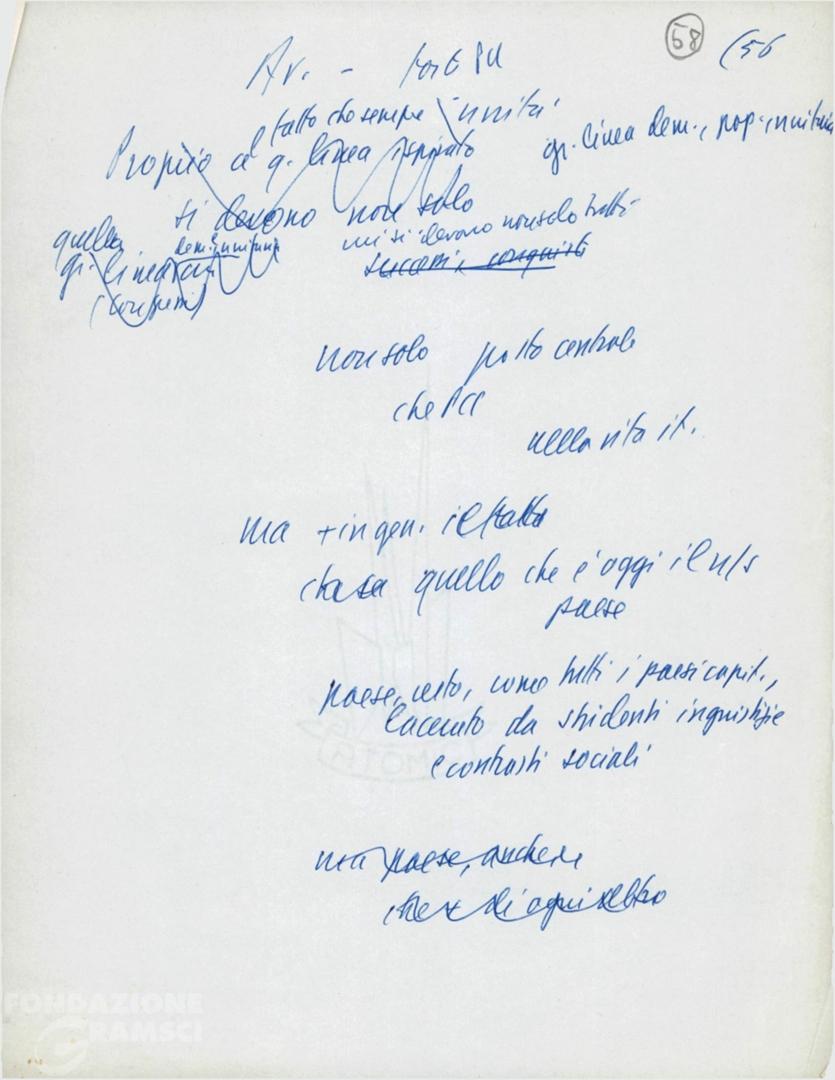 58 (56
Av. -
e fatto che sempre unità
Proprio a q. linea ispirato
gr. linea dem., pop.-unitaria
si devono non solo
quella
dem. unitaria
mi si devono non solo tutti
gr. linea
successi, conquiste
non solo posto centrale
che PCI
nella vita it.
ma + in gen. il fatto
che sa quello che è oggi il n/s
paese
paese, certo, come tutti i paesi capit.,
lacerato da stridenti ingiustizie
e contrasti sociali
ma paese, anche,
che + di ogni altro
FONDAZIONE
GRAMSCI